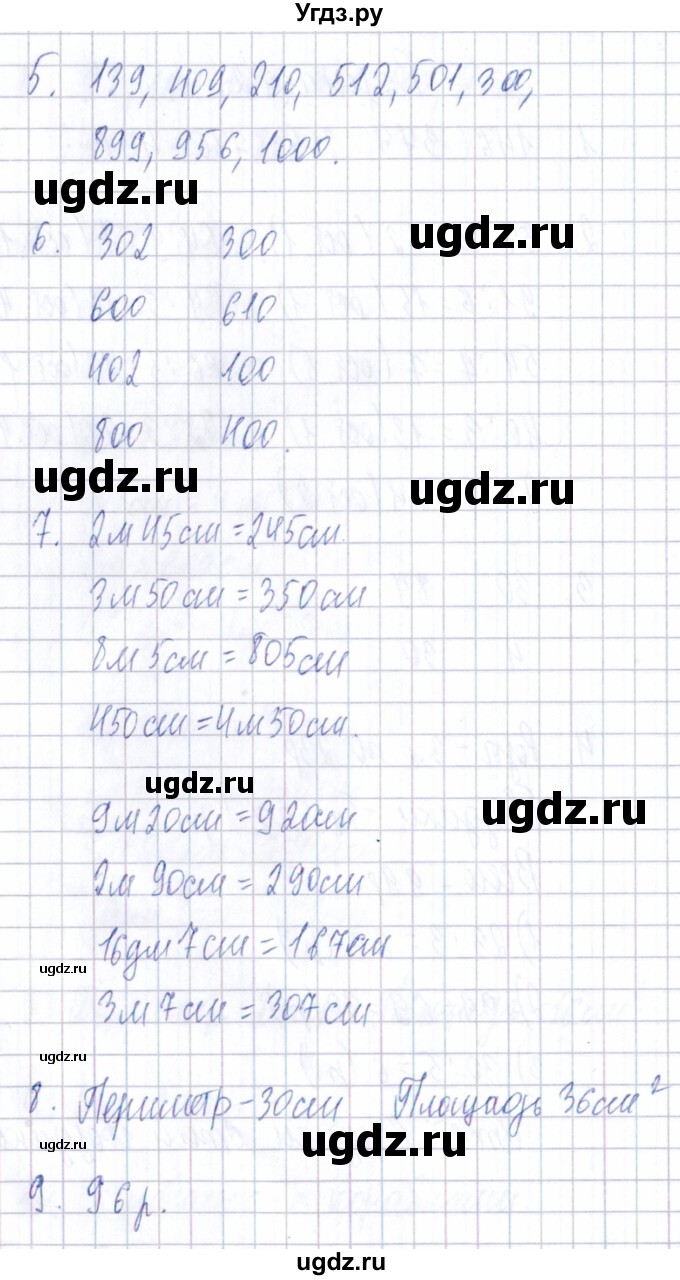 Угдз.ру
5. 139, 409, 210, 512, 501, 300,
899, 956, 1000.
ugdz.ru
ugdz.ru
6. 302 300
600 610
402 100
800 400.
ugdz.ru
ugdz.ru
7. 2м 45см = 245см.
3м 50см = 350см
8м 5см = 805см
450см = 4м 50см.
ugdz.ru
ugdz.ru
9м 20см = 920см
2м 90см = 290см
16дм 7см = 167см
ugdz.ru
3м 7см = 307см
ugdz.ru
8. Периметр - 30см Площадь 36см²
ugdz.ru
ugdz.ru
9. 96р.
ugdz.ru
ugdz.ru